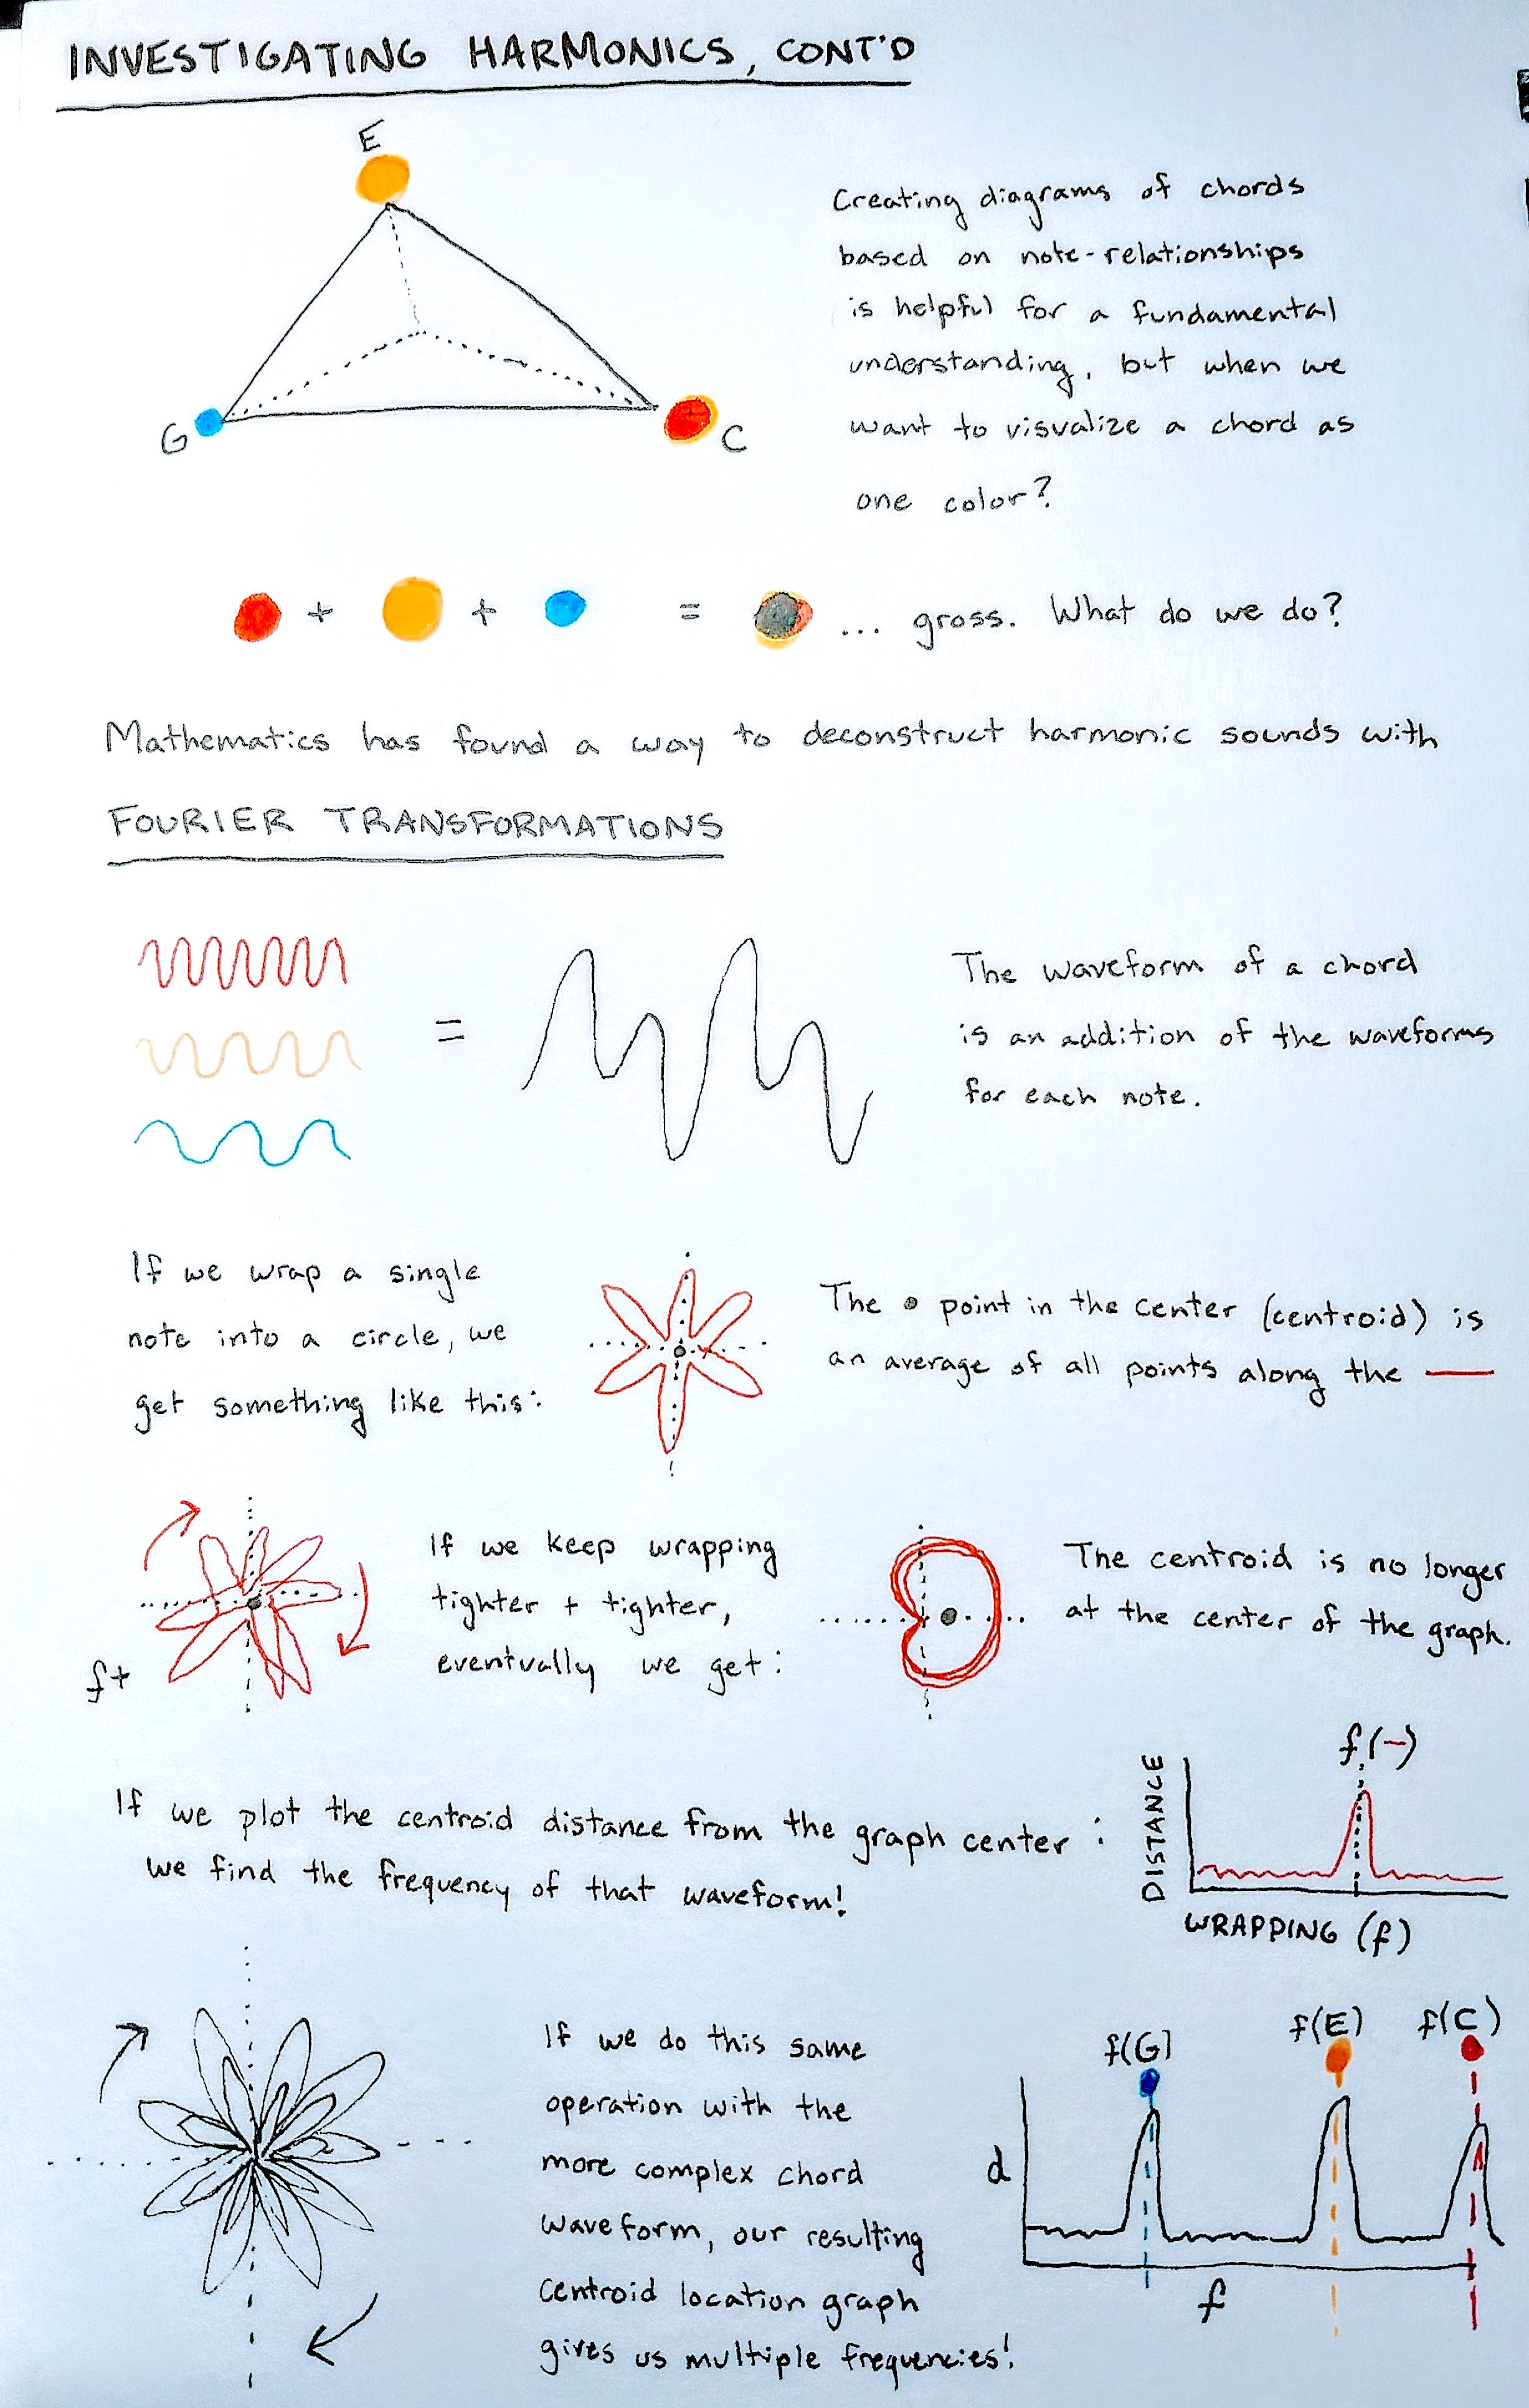 INVESTIGATING HARMONICS, CONT'D
E
G
C
Creating diagrams of chords
based on note-relationships
is helpful for a fundamental
understanding, but when we
want to visualize a chord as
one color?
+ + = ... gross. What do we do?
Mathematics has found a way to deconstruct harmonic sounds with
FOURIER TRANSFORMATIONS
=
The waveform of a chord
is an addition of the waveforms
for each note.
If we wrap a single
note into a circle, we
get something like this:
The • point in the center (centroid) is
an average of all points along the —
f+
If we keep wrapping
tighter + tighter,
eventually we get:
The centroid is no longer
at the center of the graph.
If we plot the centroid distance from the graph center :
we find the frequency of that waveform!
f(-)
DISTANCE
WRAPPING (f)
If we do this same
operation with the
more complex chord
waveform, our resulting
centroid location graph
gives us multiple frequencies!
f(G)
f(E)
f(C)
d
f